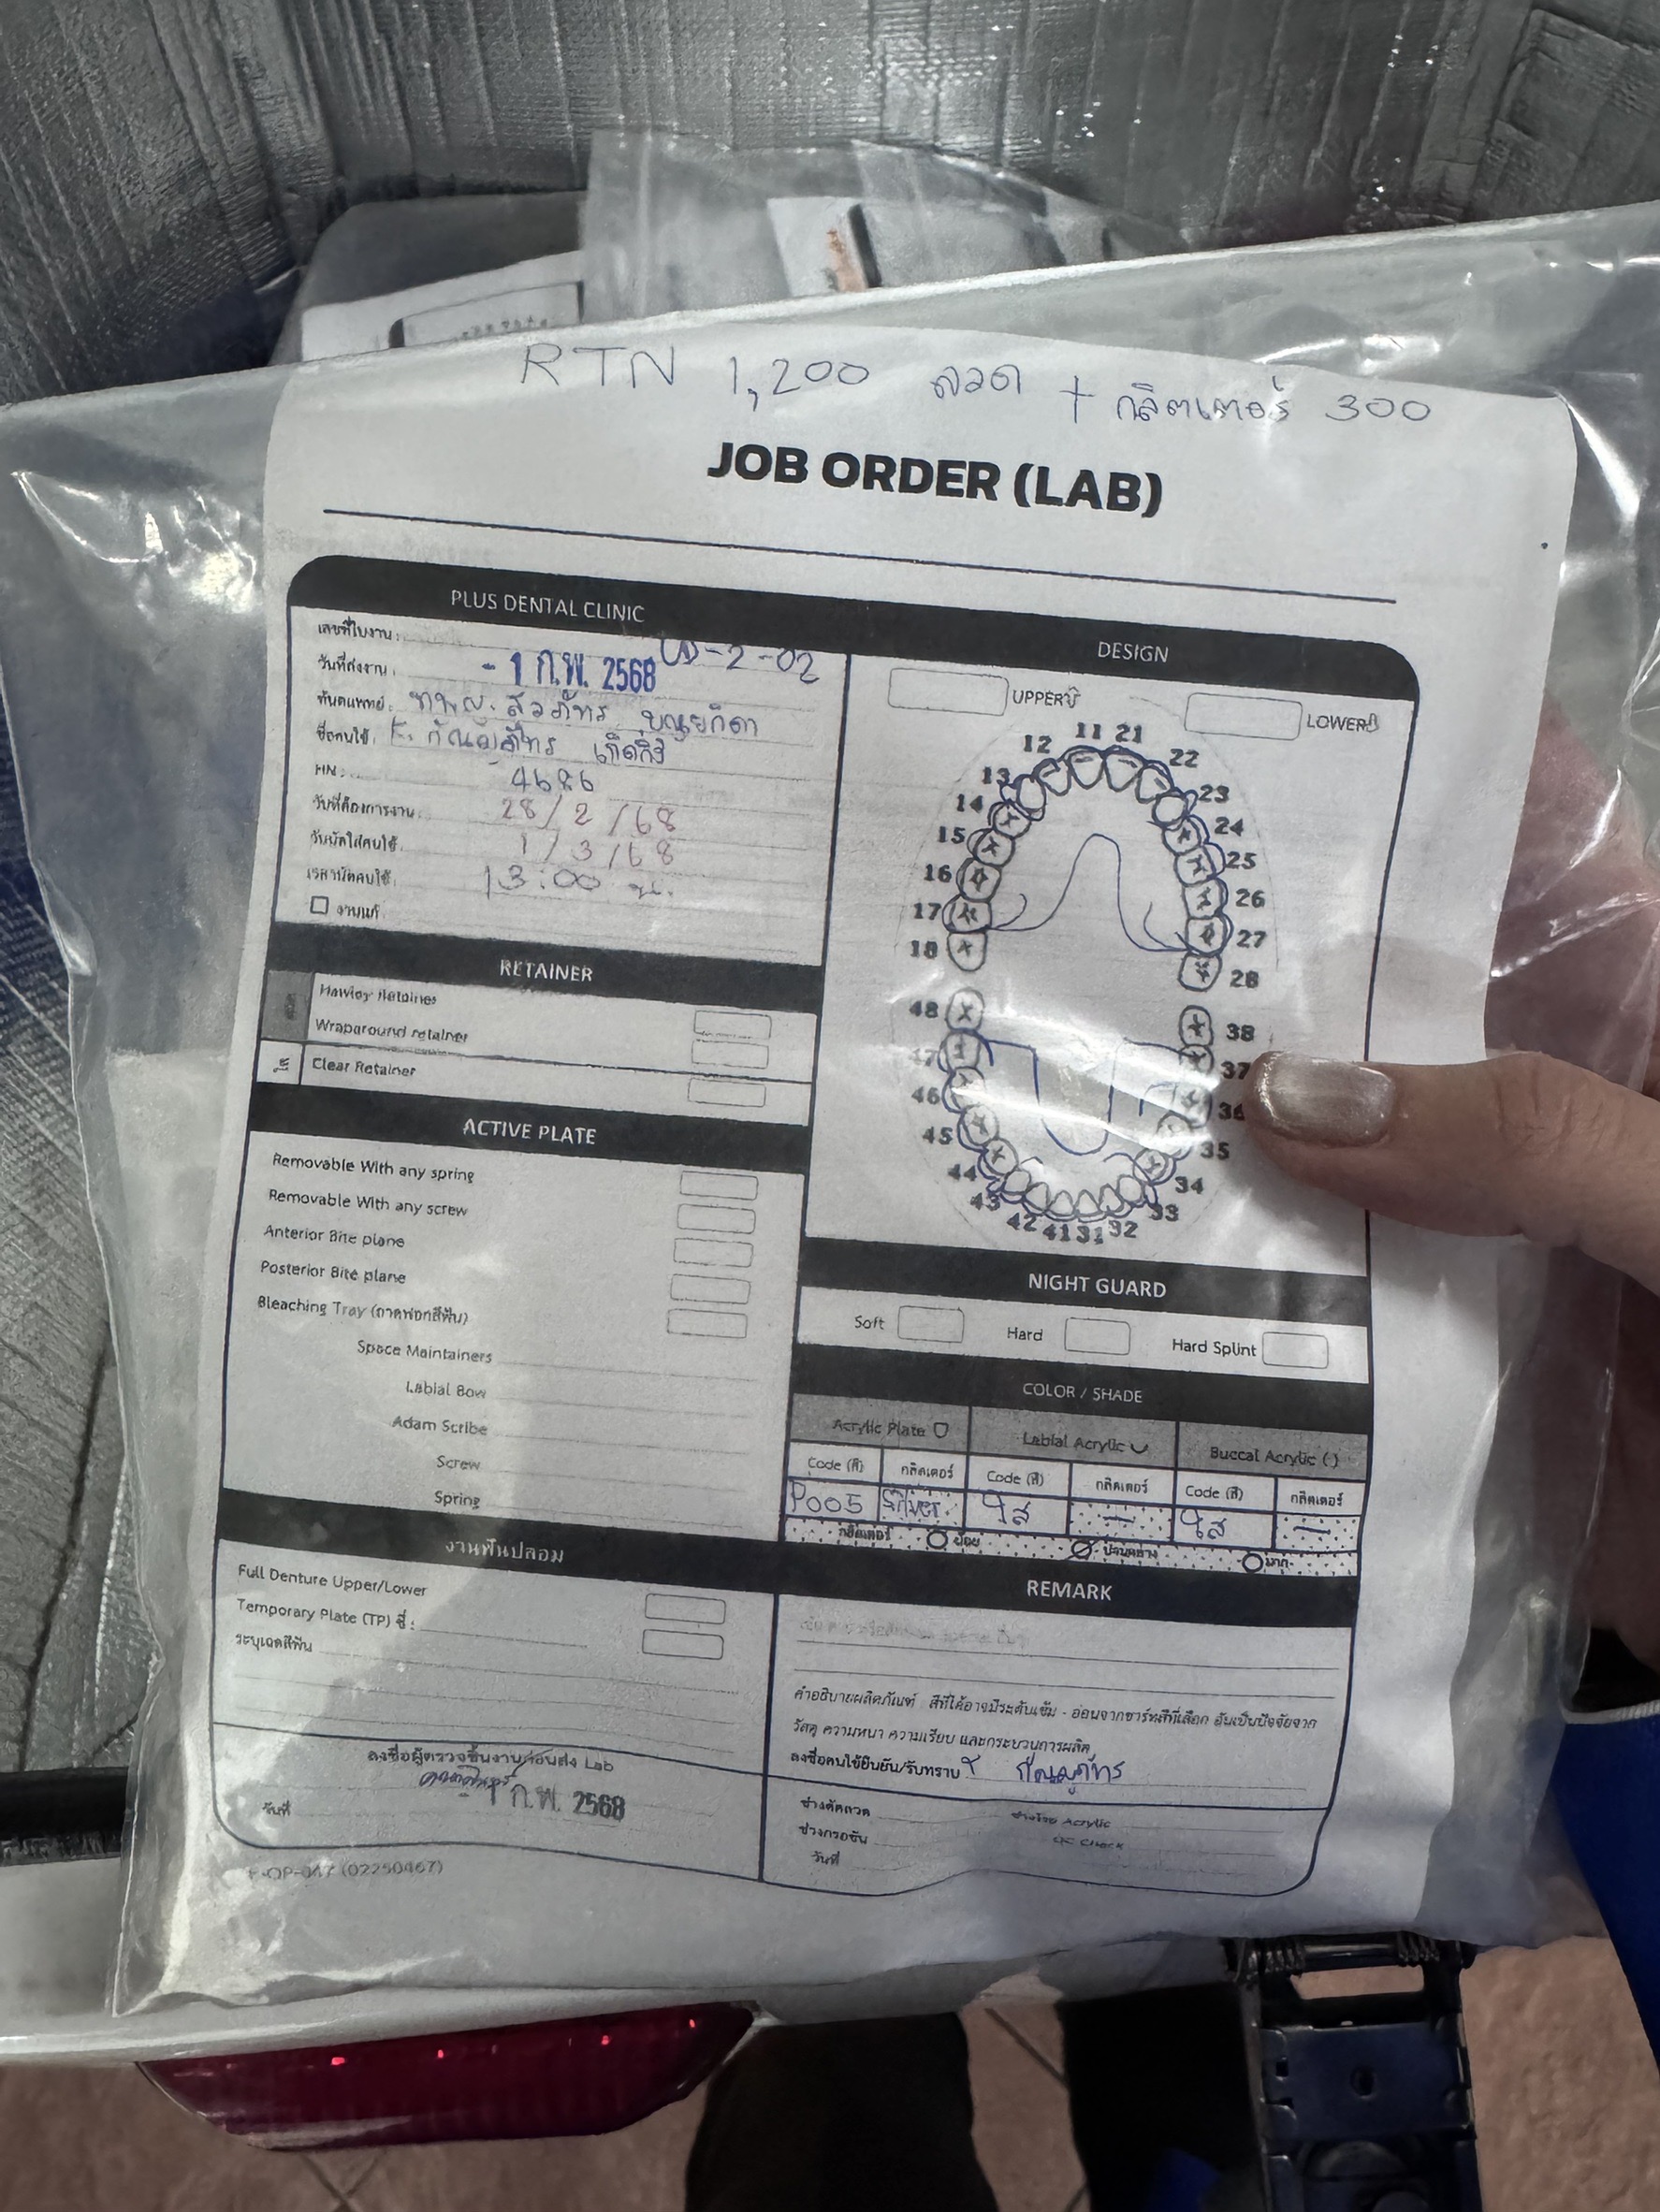 RTN 1,200 ลวด + กลิตเตอร์ 300
JOB ORDER (LAB)
PLUS DENTAL CLINIC
เลขที่ใบงาน:
วันที่ส่งงาน: - 1 ก.พ. 2568 -2-02
ทันตแพทย์:
ชื่อคนไข้:
HN: 4686
วันที่ต้องการงาน: 28/2/68
วันนัดใส่คนไข้: 1/3/68
เวลานัดคนไข้: 13:00 น.
งานแก้
RETAINER
Hawley Retainer
Wraparound retainer
Clear Retainer
ACTIVE PLATE
Removable With any spring
Removable With any screw
Anterior Bite plane
Posterior Bite plane
Bleaching Tray (ถาดฟอกสีฟัน)
Space Maintainers
Labial Bow
Adam Scribe
Screw
Spring
งานฟันปลอม
Full Denture Upper/Lower
Temporary Plate (TP) ซี่:
ระบุเฉดสีฟัน
ลงชื่อผู้ตรวจชิ้นงานก่อนส่ง Lab
วันที่ 1 ก.พ. 2568
DESIGN
UPPER LOWER
11 21
12 22
13 23
14 24
15 25
16 26
17 27
18 28
48 38
47 37
46 36
45 35
44 34
43 33
42 41 31 32
NIGHT GUARD
Soft Hard Hard Splint
COLOR / SHADE
Acrylic Plate Labial Acrylic Buccal Acrylic ( )
Code (สี) กลิตเตอร์ Code (สี) กลิตเตอร์ Code (สี) กลิตเตอร์
P005 Silver ใส - ใส -
กลิตเตอร์ น้อย ปานกลาง มาก
REMARK
คำอธิบายผลิตภัณฑ์ สีที่ได้อาจมีระดับเข้ม - อ่อนจากชาร์ทสีที่เลือก อันเป็นปัจจัยจาก
วัสดุ ความหนา ความเรียบ และกระบวนการผลิต
ลงชื่อคนไข้ยืนยัน/รับทราบ
ช่างดัดลวด ช่างโรย Acrylic
ช่างกรอขัด QC Check
วันที่
(02250467)